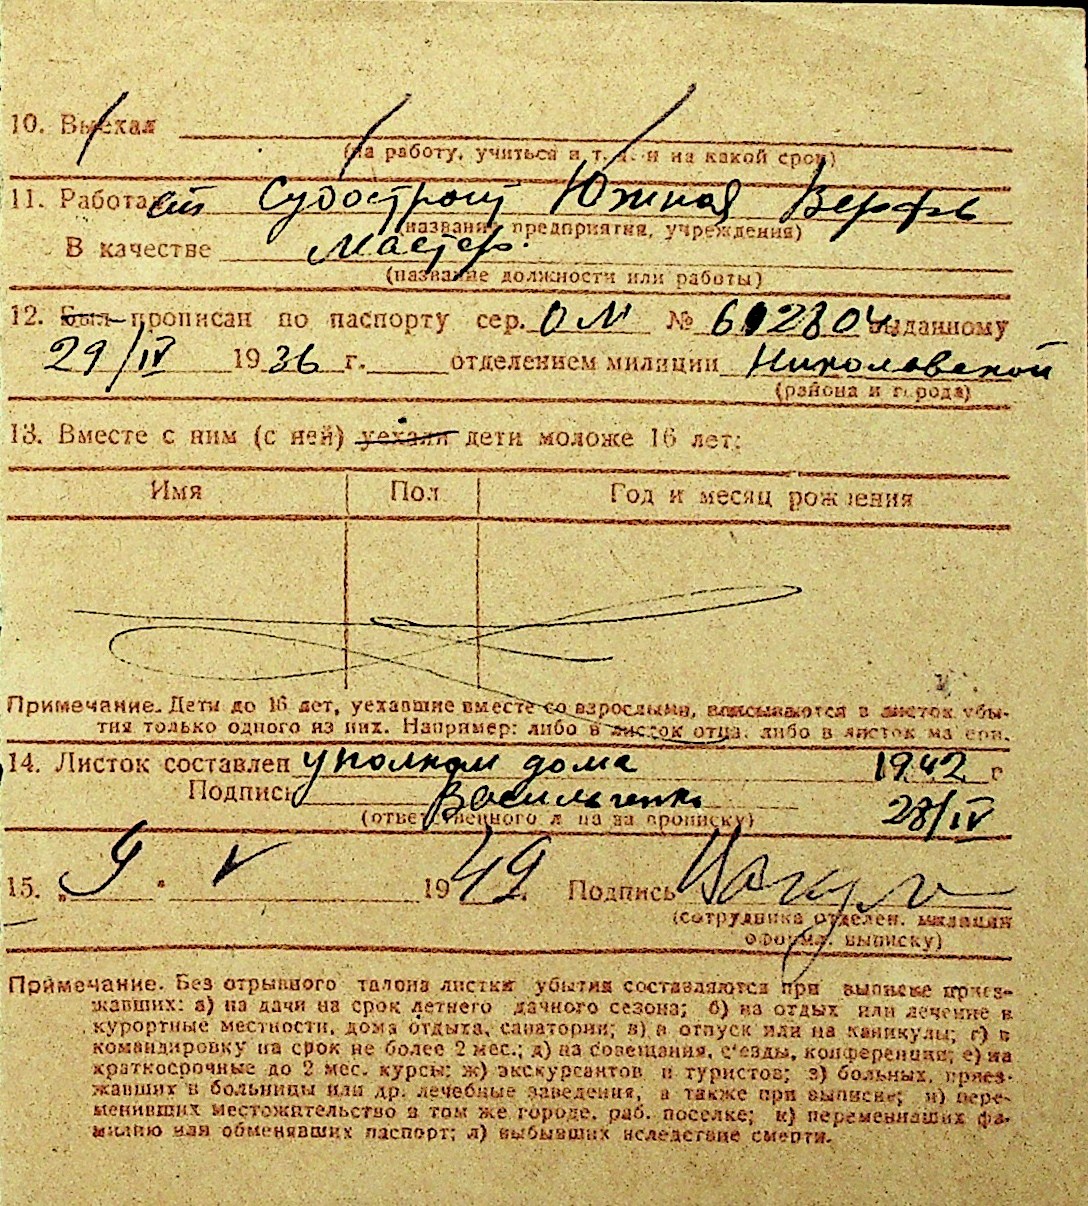 10. Выехал
(на работу, учиться и т. д. и на какой срок)
11. Работает Судостроит Южная Верфь
(название предприятия, учреждения)
В качестве Мастер.
(название должности или работы)
12. Был прописан по паспорту сер. О М № 612804 выданному
29/IV 1936 г. отделением милиции Николаевской
(района и города)
13. Вместе с ним (с ней) уехали дети моложе 16 лет:
Имя Пол Год и месяц рождения
Примечание. Дети до 16 лет, уехавшие вместе со взрослыми, вписываются в листок убы-
тия только одного из них. Например: либо в листок отца, либо в листок матери.
14. Листок составлен уполном дома 1942 г
Подпись Васильченко 28/IV
(ответственного л-ца за прописку)
15. „9 " V 1949. Подпись
(сотрудника отделен. милиции
оформл. выписку)
Примечание. Без отрывного талона листки убытия составляются при выписке приез-
жавших: а) на дачи на срок летнего дачного сезона; б) на отдых или лечение в
курортные местности, дома отдыха, санатории; в) в отпуск или на каникулы; г) в
командировку на срок не более 2 мес.; д) на совещания, с'езды, конференции; е) на
краткосрочные до 2 мес. курсы; ж) экскурсантов и туристов; з) больных, приез-
жавших в больницы или др. лечебные заведения, а также при выписке; и) пере-
менивших местожительство в том же городе, раб. поселке; к) переменивших фа-
милию или обменявших паспорт; л) выбывших вследствие смерти.